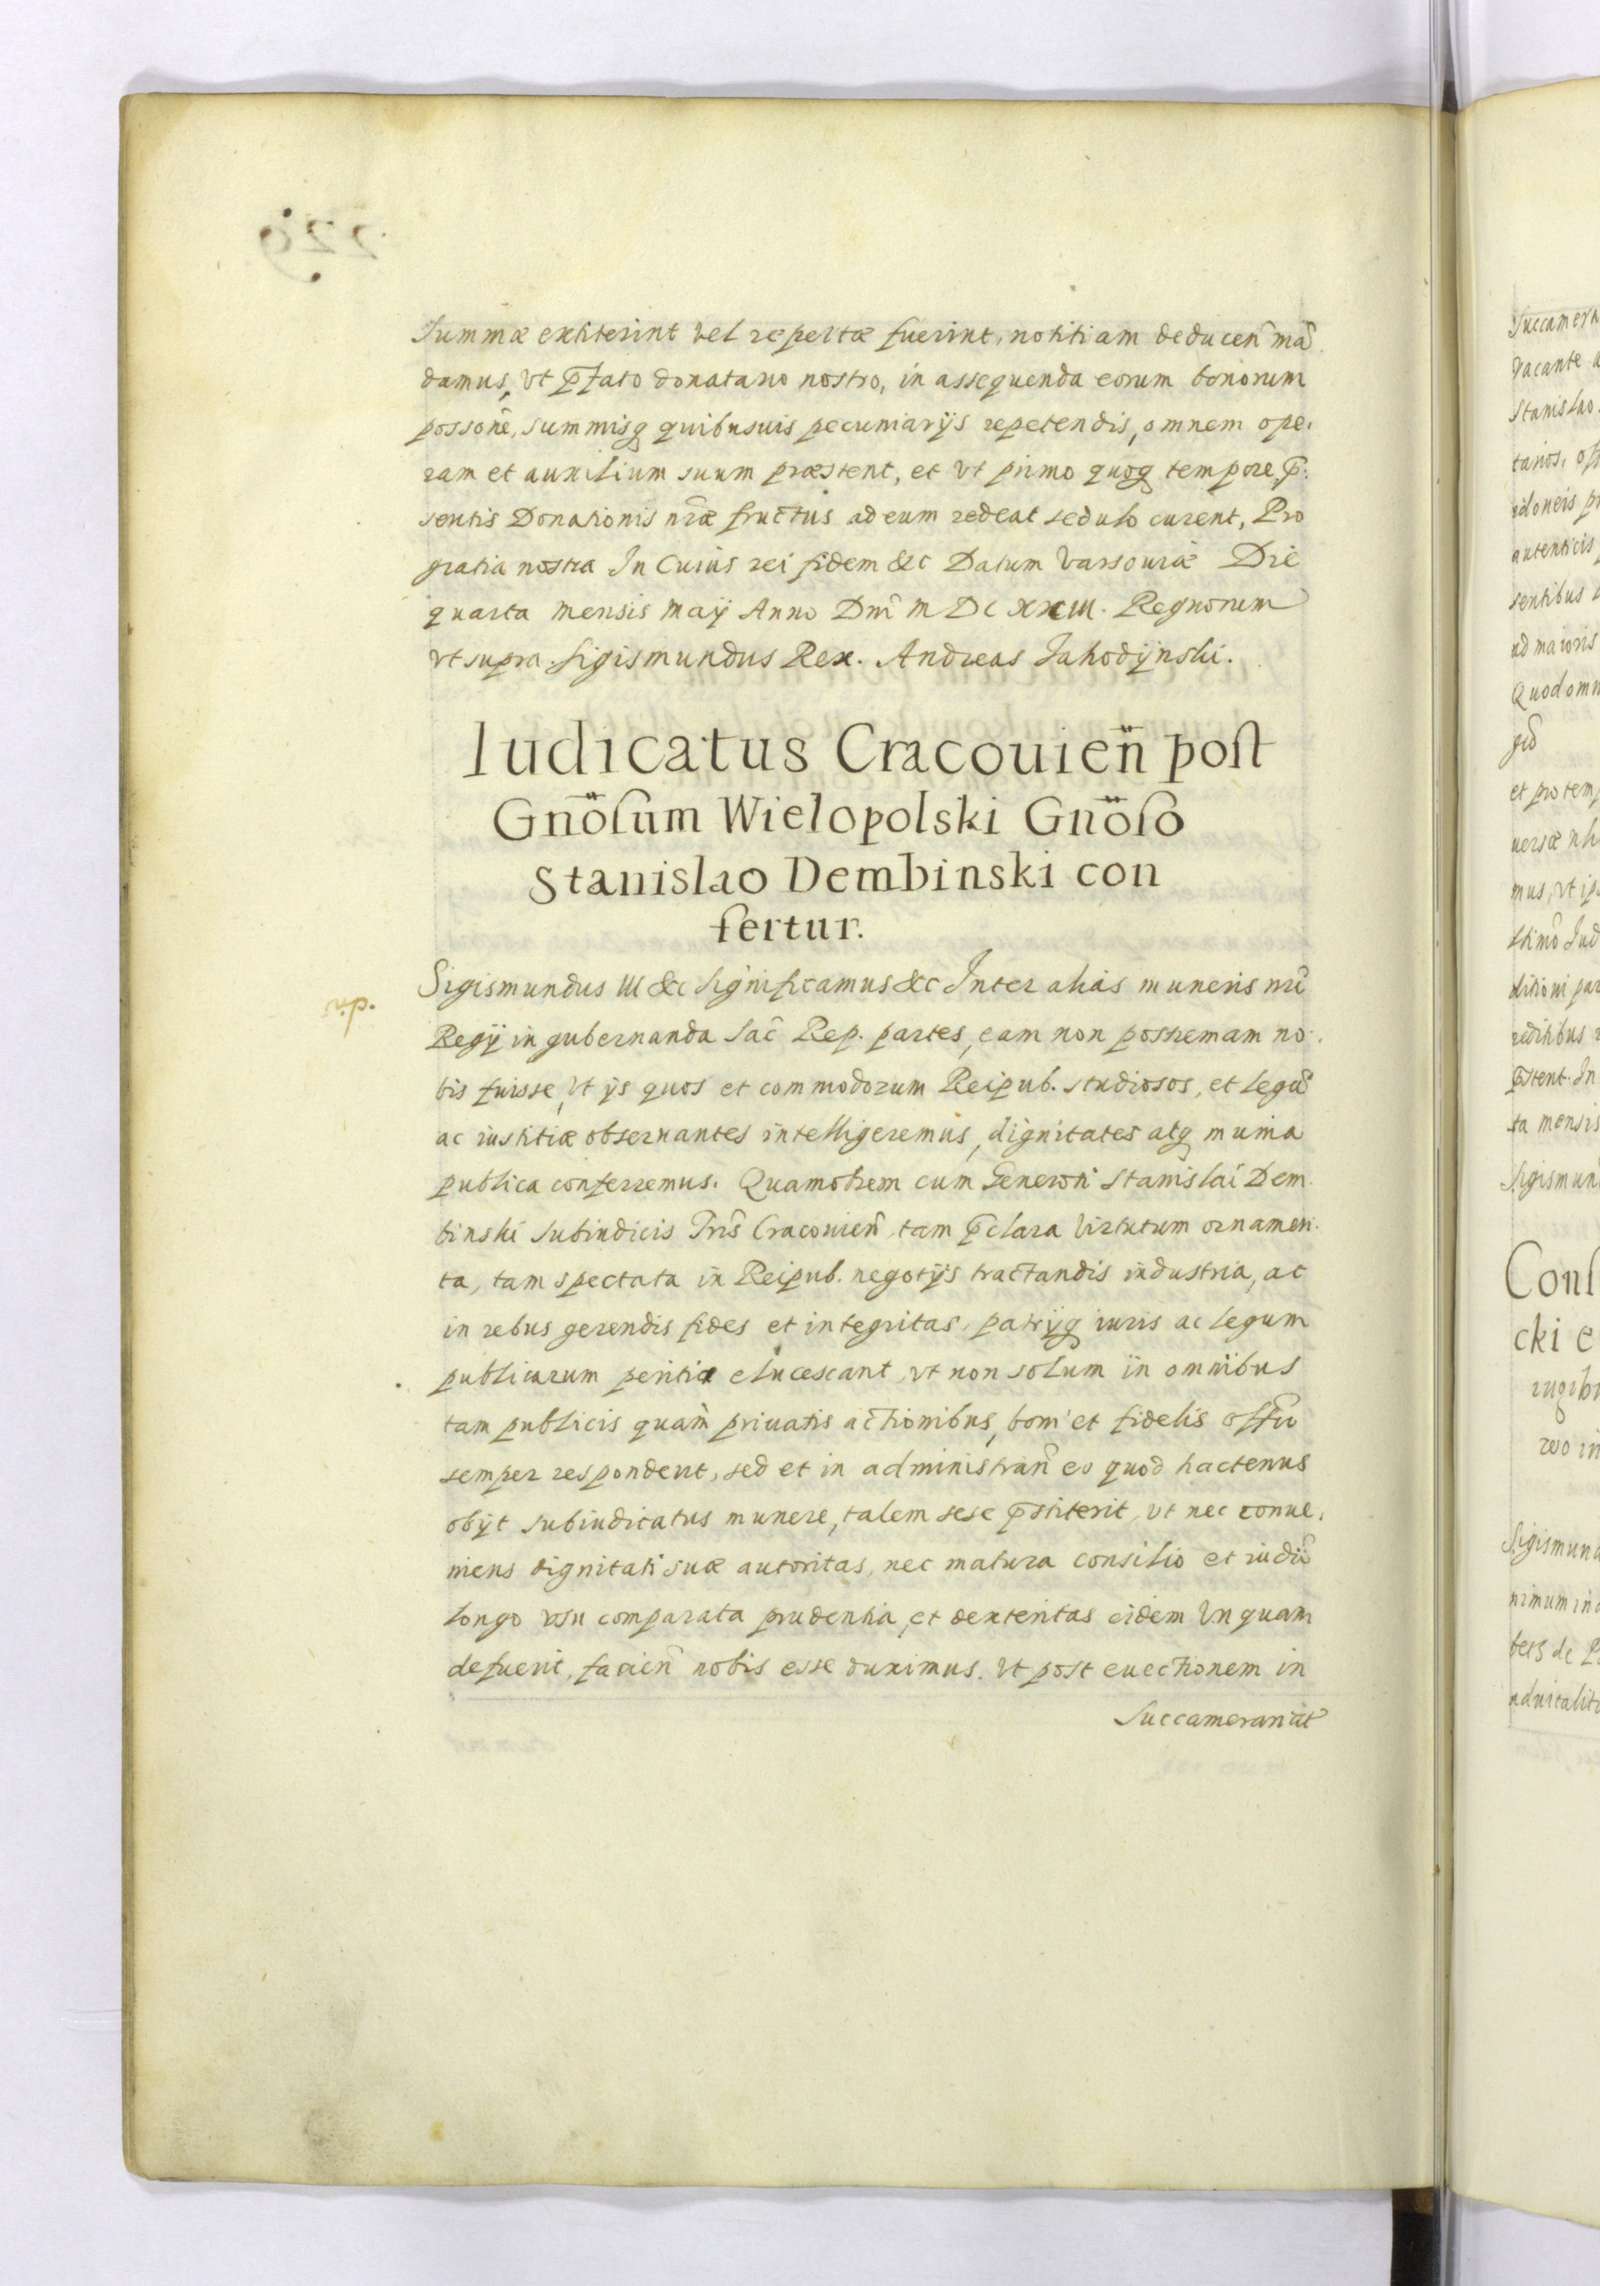 229
summæ extiterint vel repertæ fuerint, notitiam deducen̄ mā
damus, vt p̄fato donatario nostro, in assequenda eorum bonorum
possonē, summisq quibusuis pecuniarijs repetendis, omnem ope,
ram et auxilium suum præstent, et vt primo quoq tempore, p̄
sentis Donationis nr̄æ fructus ad eum redeat sedulo curent, Pro
gratia nostra In Cuius rei fidem &c Datum Varsouiæ Die
quarta mensis Maÿ Anno Dnī M D C XXIII. Regnorum
vt supra. Sigismundus Rex. Andreas Jahodÿnski.
Iudicatus Cracouien̄ post
Gnōsum Wielopolski Gnōso
Stanislao Dembinski con
fertur.
n.p.
Sigismundus III &c Significamus &c Inter alias muneris nrī
Regÿ in gubernanda Sac̄ Rep. partes, eam non postremam no.
bis fuisse, vt ÿs quos et commodorum Reipub. studiosos, et legū
ac iustitiæ obseruantes intelligeremus, dignitates atq munia
publica conferremus. Quamobrem cum Generosi Stanislai Dem.
binski Subiudicis Trīs Cracouien̄, tam p̄clara virtutum ornamen.
ta, tam spectata in Reipub. negotÿs tractandis industria, ac
in rebus gerendis fides et integritas, patrÿq iuris ac legum
publicarum peritia elucescant, vt non solum in omnibus
tam publicis quam priuatis actionibus, boni et fidelis offīo
semper responderit, sed et in administran̄ eo quod hactenus
obÿt subiudicatus munere, talem sese p̄stiterit, vt nec conue,
niens dignitati suæ autoritas, nec matura consilio et iudīo
longo vsu comparata prudentia, et dexteritas eidem vnquam
defuerit, facien̄ nobis esse duximus. Vt post euectionem in
Succamerariat
Succamera
vacante a
Stanislao
tarios, off
idoneis pr
autenticis
sentibus
ad maioris
Quod omn
giō
et pro temp
uersæ
mus, vt ips
Iud
ditioni par
reditibus
p̄stent. In
ta mensis
Sigismun
Cons
cki e
iugibu
uo in
Sigismund
nimum
de
aduitalit